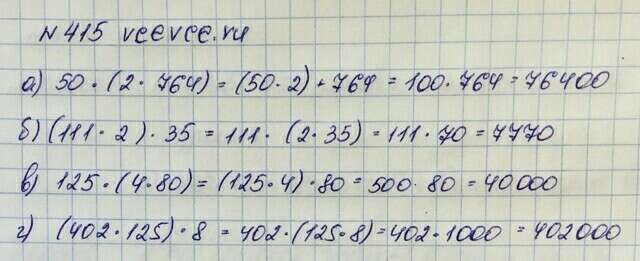 N 415 vcevce.ru
а) 50 · (2 · 764) = (50 · 2) + 764 = 100 · 764 = 76400
б) (111 · 2) · 35 = 111 · (2 · 35) = 111 · 70 = 7770
в) 125 · (4 · 80) = (125 · 4) · 80 = 500 · 80 = 40000
г) (402 · 125) · 8 = 402 · (125 · 8) = 402 · 1000 = 402000